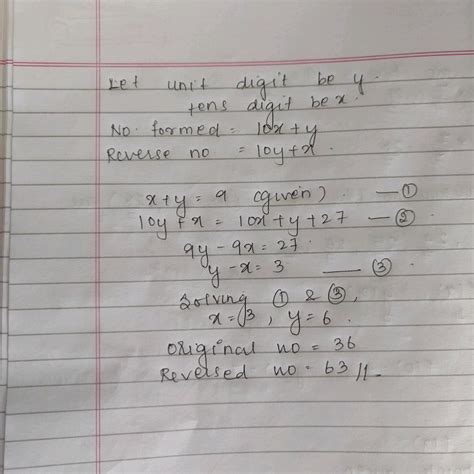 Let unit digit be y.
tens digit be x.
No. formed = 10x+y
Reverse no = 10y+x.
x+y = 9 (given). — ①
10y+x = 10x+y+27 — ②
9y-9x = 27.
y-x = 3 — ③.
Solving ① & ③,
x=3, y=6.
Original no = 36
Reversed no = 63 //.